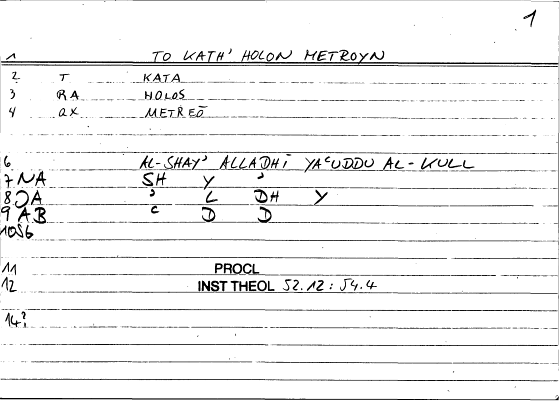 1
1 TO KATH' HOLON METROYN
2 T KATA
3 RA HOLOS
4 QX METREŌ
6 AL-SHAY' ALLADHĪ YAʿUDDU AL-KULL
7 NA SH Y ʾ
8 JA ʾ L DH Y
9 AB ʿ D D
10 S6
11 PROCL
12 INST THEOL 52.12 : 54.4
14?